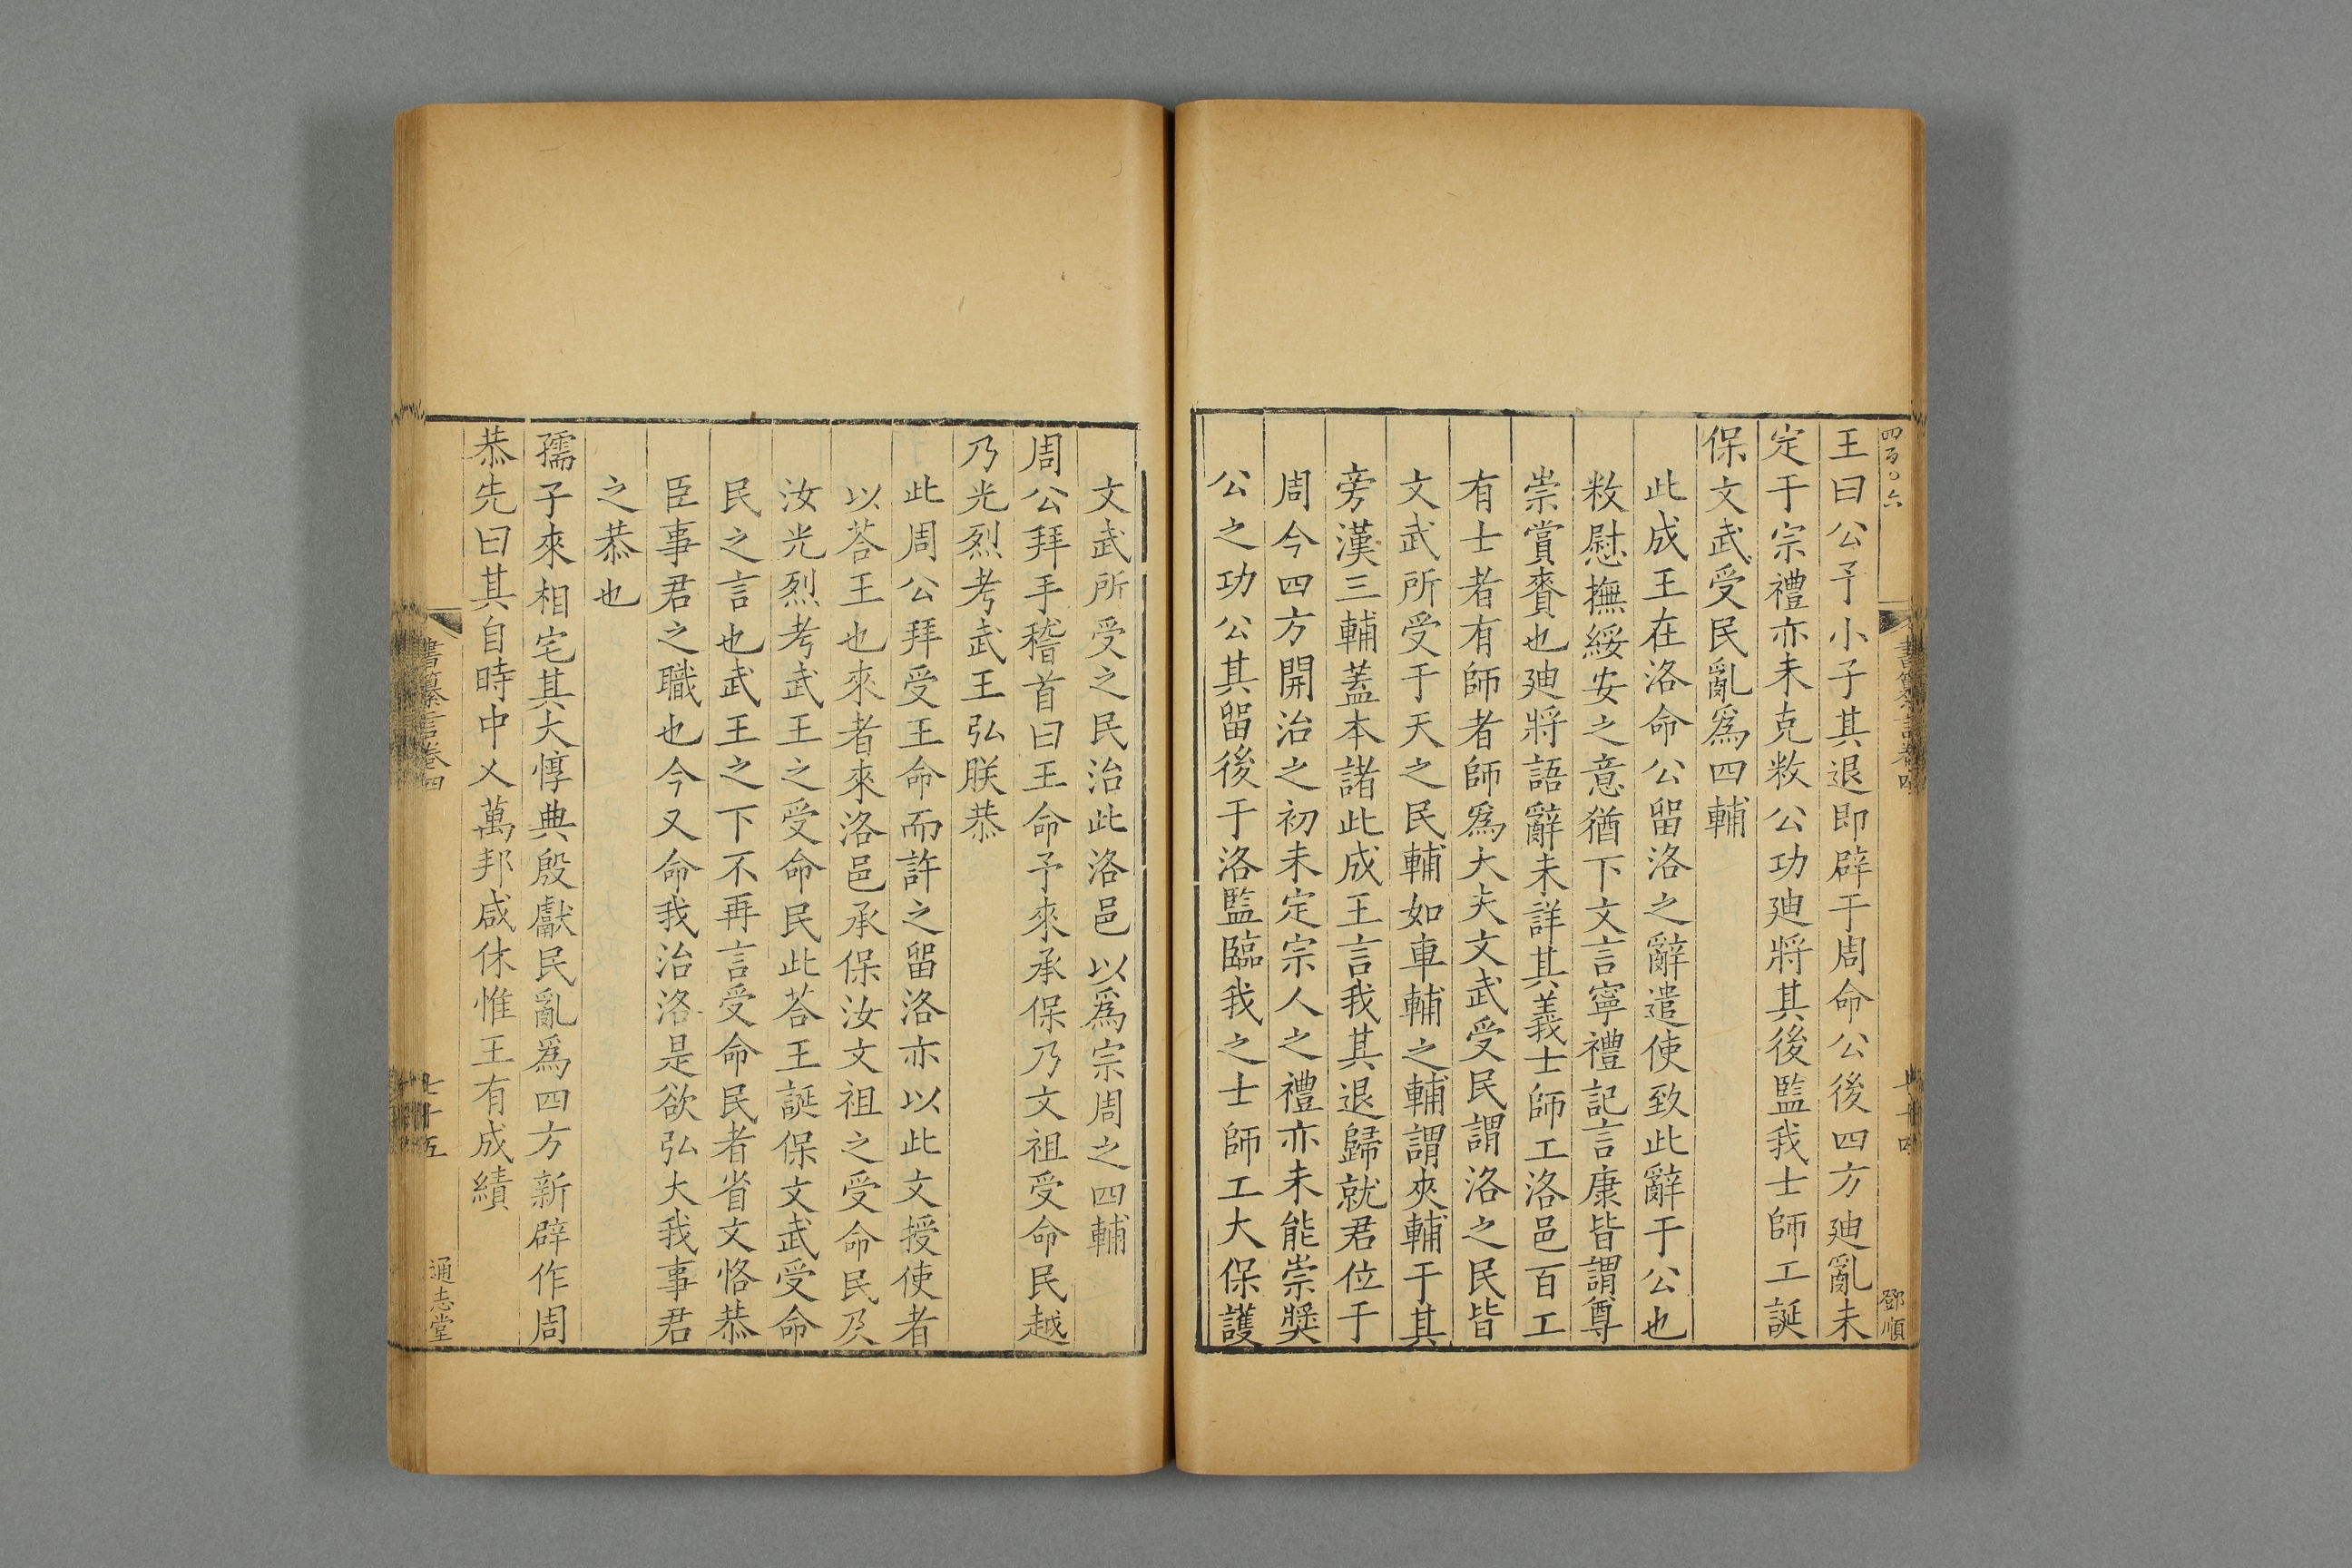 四百〇六
書纂言卷四
七十四
鄧順
王曰公予小子其退即辟于周命公後四方廸亂未
定于宗禮亦未克敉公功廸將其後監我士師工誕
保文武受民亂爲四輔
此成王在洛命公留洛之辭遣使致此辭于公也
敉慰撫綏安之意猶下文言寧禮記言康皆謂尊
崇賞賚也廸將語辭未詳其義士師工洛邑百工
有士者有師者師爲大夫文武受民謂洛之民皆
文武所受于天之民輔如車輔之輔謂夾輔于其
旁漢三輔蓋本諸此成王言我其退歸就君位于
周今四方開治之初未定宗人之禮亦未能崇奬
公之功公其留後于洛監臨我之士師工大保護
文武所受之民治此洛邑以爲宗周之四輔
周公拜手稽首曰王命予來承保乃文祖受命民越
乃光烈考武王弘朕恭
此周公拜受王命而許之留洛亦以此文授使者
以荅王也來者來洛邑承保汝文祖之受命民及
汝光烈考武王之受命民此荅王誕保文武受命
民之言也武王之下不再言受命民者省文恪恭
臣事君之職也今又命我治洛是欲弘大我事君
之恭也
孺子來相宅其大惇典殷獻民亂爲四方新辟作周
恭先曰其自時中乂萬邦咸休惟王有成績
書纂言卷四
七十五
通志堂